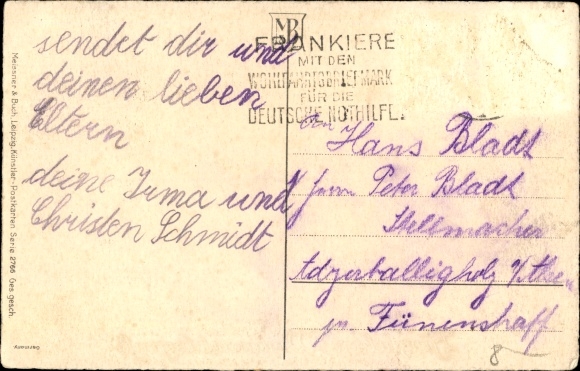 sendet dir und
deinen lieben
Eltern
deine Irma und
Christen Schmidt
MB
FRANKIERE
MIT DEN
WOHLFAHRTSBRIEFMARK
FÜR DIE
DEUTSCHE NOTHILFE.
An Hans Bladt
Peter Bladt
Stellmacher
Adzerballigholz
pr. Fünenshaff
8
Meissner & Buch, Leipzig. Künstler-Postkarten Serie 2766 Ges. gesch.